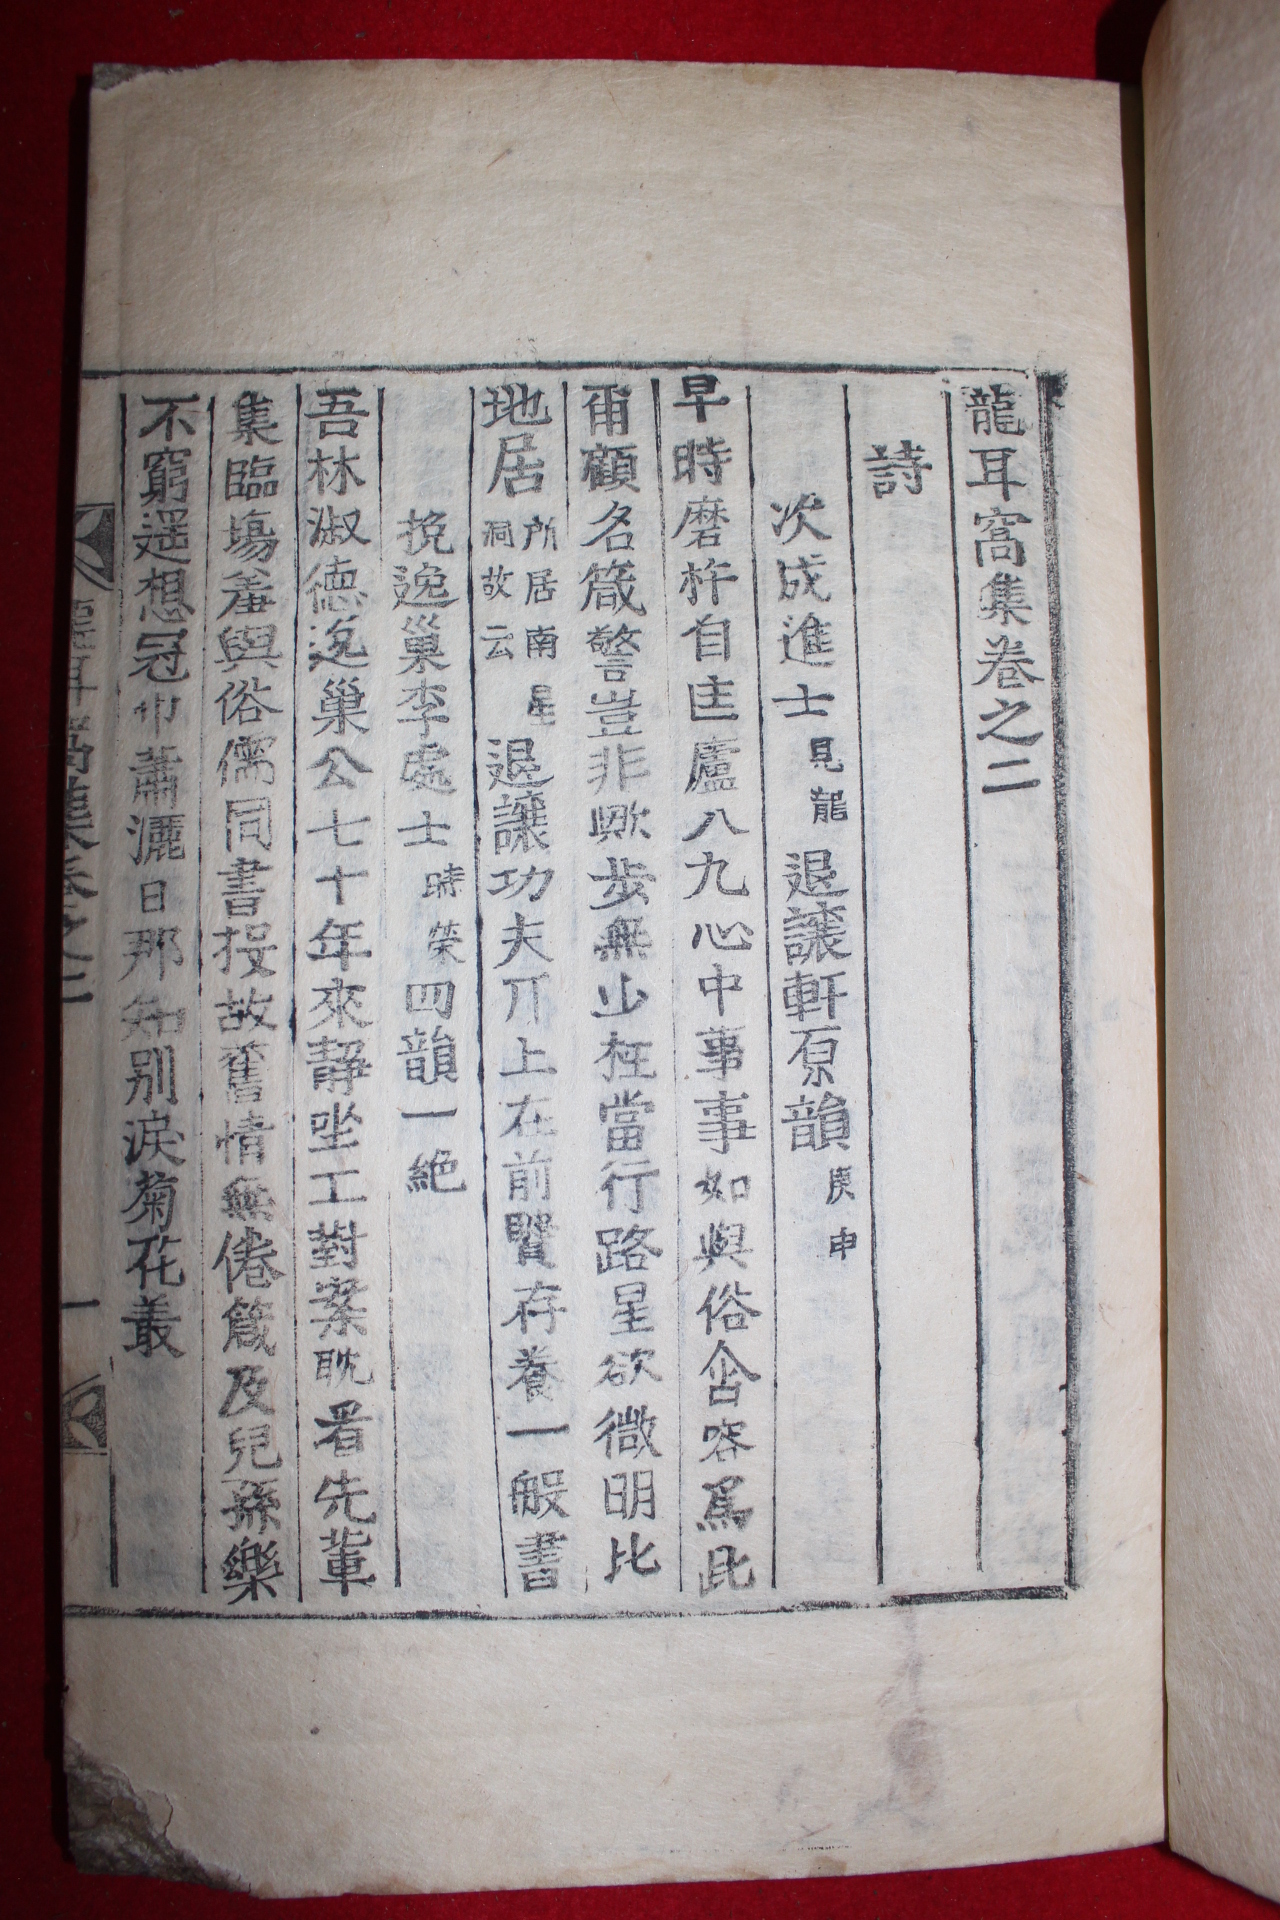 龍耳窩集卷之二
詩
次成進士見龍退讓軒原韻庚申
早時磨杵自匡廬八九心中事事如與俗含容爲此
爾顧名箴警豈非歟步無少枉當行路星欲微明比
地居所居南星洞故云退讓功夫丌上在前賢存養一般書
挽逸巢李處士時榮四韻一絶
吾林淑德逸巢公七十年來靜坐工對案耽看先輩
集臨場羞與俗儒同書投故舊情無倦箴及兒孫樂
不窮遥想冠巾蕭灑日那知別淚菊花叢
龍耳窩集卷之二 一